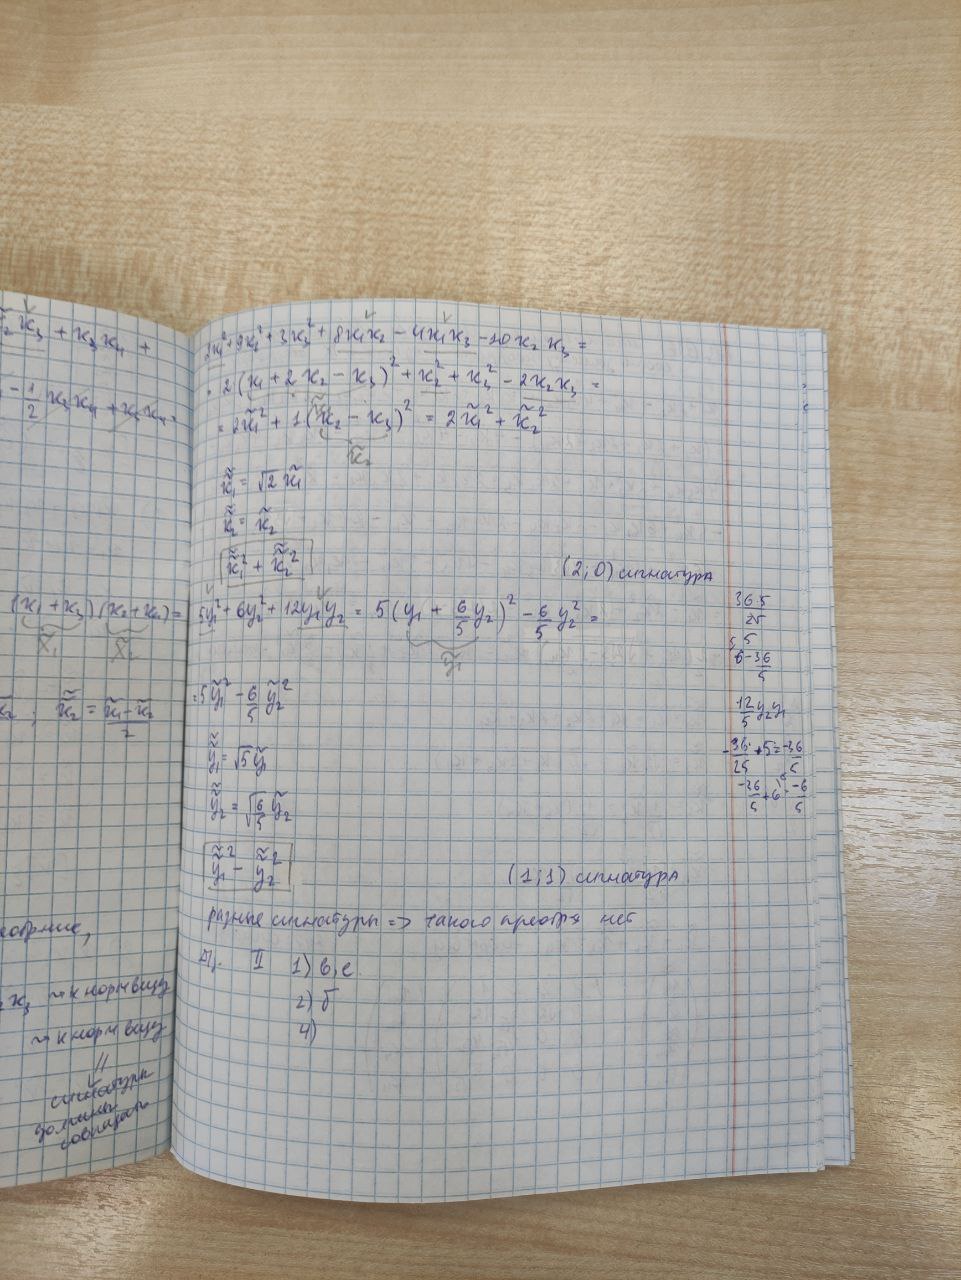 x₃ + x₃x₄ +
- 1/2 x₃x₄ + x₃x₄ =
(x₁ + x₃)(x₂ + x₄) =
x̃₂ = (x̃₁ - x̃₂)/2
x₃ ~ к норм виду
~ к норм виду
сигнатуры
должны
совпадать
2x₁² + 9x₂² + 3x₃² + 8x₁x₂ - 4x₁x₃ - 10x₂x₃ =
= 2(x₁ + 2x₂ - x₃)² + x₂² + x₃² - 2x₂x₃ =
= 2x̃₁² + 1(x₂ - x₃)² = 2x̃₁² + x̃₂²
x̃₂
x̃̃₁ = √2 x̃₁
x̃̃₂ = x̃₂
x̃̃₁² + x̃̃₂²
(2; 0) сигнатура
5y₁² + 6y₂² + 12y₁y₂ = 5(y₁ + 6/5 y₂)² - 6/5 y₂² =
ỹ₁
= 5ỹ₁² - 6/5 ỹ₂²
ỹ̃₁ = √5 ỹ₁
ỹ̃₂ = √6/5 ỹ₂
ỹ̃₁² - ỹ̃₂²
(1; 1) сигнатура
разные сигнатуры => такого преобр-я нет
II 1) в, е
2) б
4)
36·5
25
6 - 36/5
12/5 y₂y₁
- 36/25 · 5 = -36/5
-36/5 + 6 = -6/5